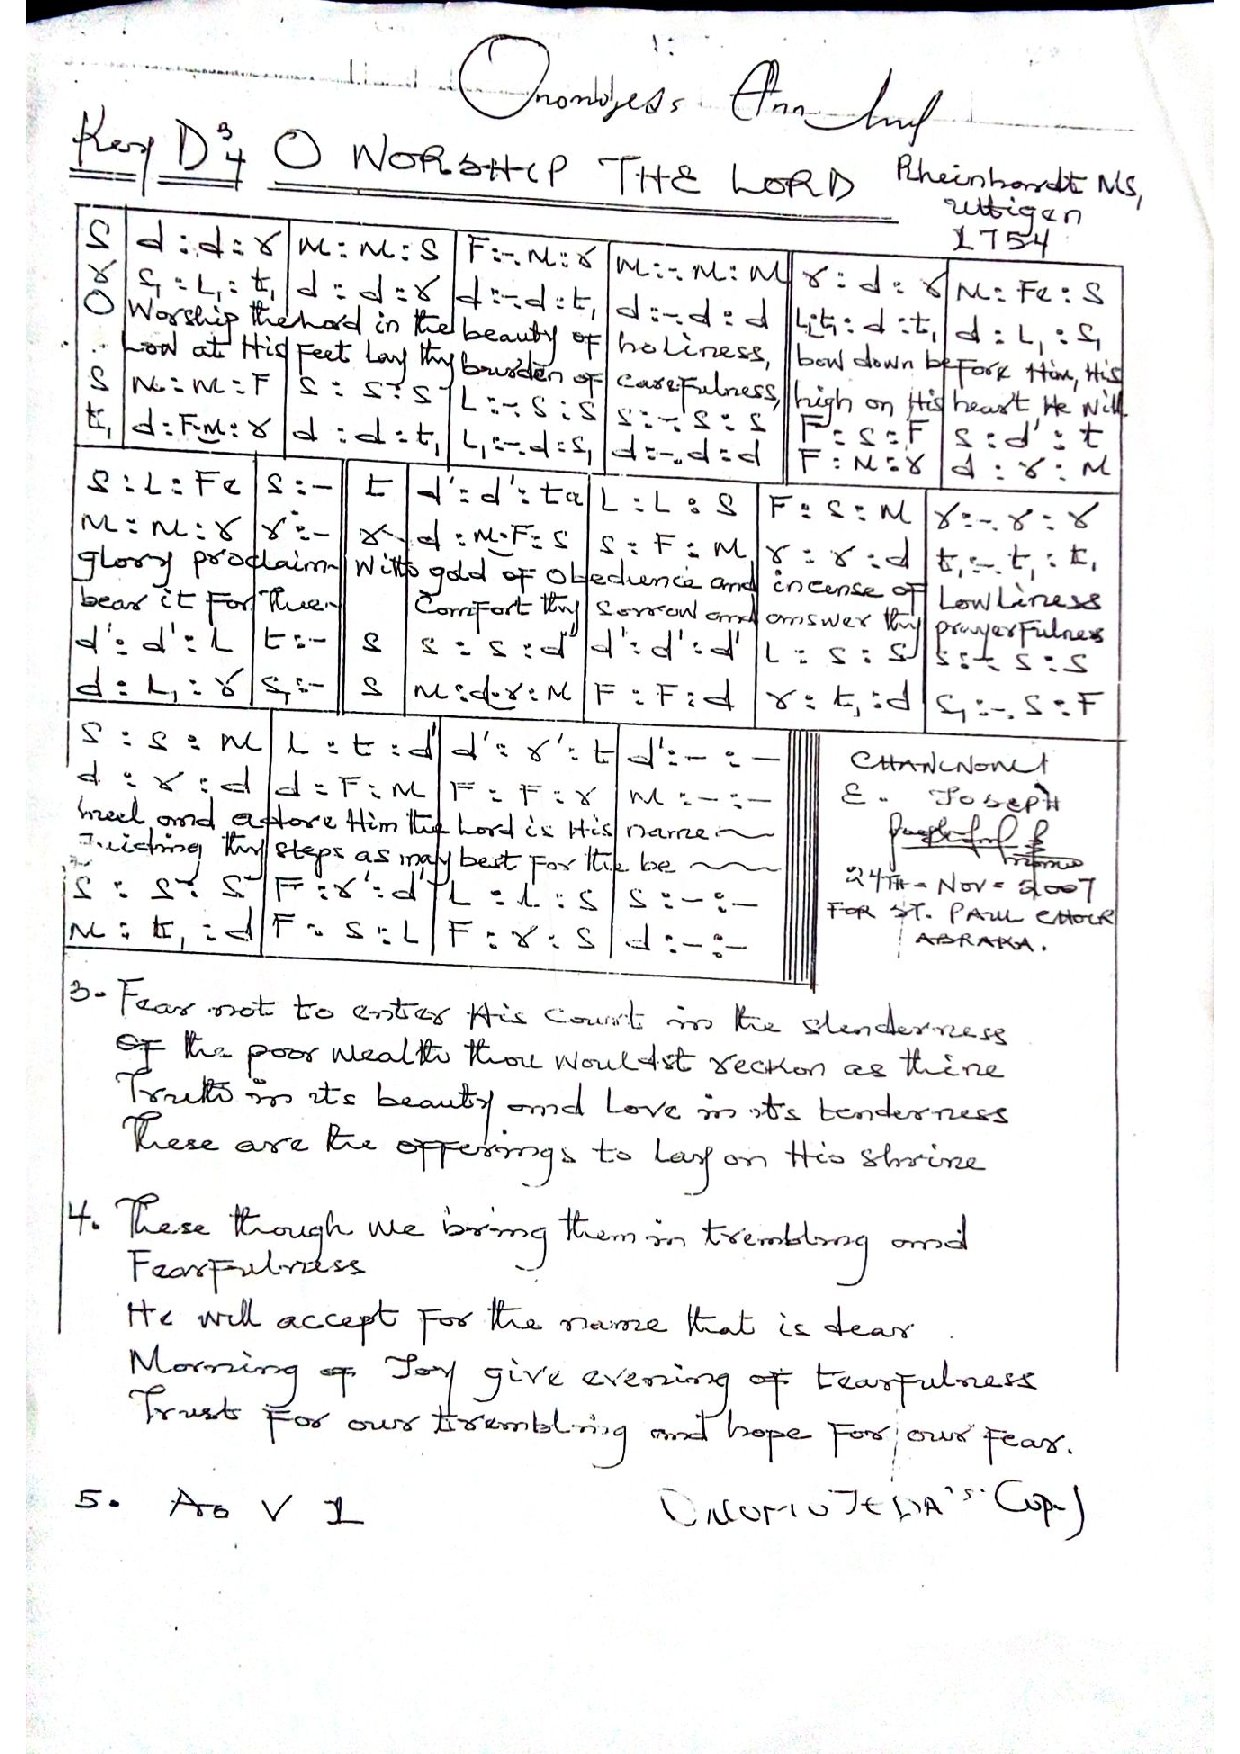 Ann
Key D 3/4 O WORSHIP THE LORD
Rheinhardt MS,
Uttigen
1754
S | d : d : r | M : M : S | F :-. M : r | M :-. M : M | r : d : r | M : Fe : S
r | S₁ : L₁ : t₁ | d : d : r | d :-. d : t₁ | d :-. d : d | L₁.t₁ : d : t₁ | d : L₁ : S₁
O Worship the Lord in the beauty of holiness, bow down before Him, His
Low at His Feet Lay thy burden of carefulness, high on His heart He will
S | M : M : F | S : S : S | L :-. S : S | S :-. S : S | F : S : F | S : d' : t
t₁ | d : F.M : r | d : d : t₁ | L₁ :-. d : S₁ | d :-. d : d | F : M : r | d : r : M
S : L : Fe | S : - | t | d' : d' : ta | L : L : S | F : S : M | r :-. r : r
M : M : r | r : - | r | d : M.F : S | S : F : M | r : r : d | t₁ :-. t₁ : t₁
glory proclaim With gold of Obedience and incense of Lowliness
bear it For Thee Comfort thy Sorrow and answer thy prayerfulness
d' : d' : L | t : - | S | S : S : d' | d' : d' : d' | L : S : S | S :-. S : S
d : L₁ : r | S₁ : - | S | M : d.r : M | F : F : d | r : t₁ : d | S₁ :-. S : F
S : S : M | L : t : d' | d' : r' : t | d' : - : -
d : r : d | d : F : M | F : F : r | M : - : -
kneel and adore Him the Lord is His name
Guiding thy steps as may best For the be
S : S : S | F : r' : d' | L : L : S | S : - : -
M : t₁ : d | F : S : L | F : r : S | d : - : -
E. JOSEPH
24TH - NOV - 2007
FOR ST. PAUL CHOIR
ABRAKA.
3- Fear not to enter His Court in the slenderness
Of the poor wealth thou wouldst reckon as thine
Truth in its beauty and Love in its tenderness
These are the offerings to Lay on His Shrine
4. These though we bring them in trembling and
Fearfulness
He will accept For the name that is dear
Morning of Joy give evening of tearfulness
Trust For our trembling and hope For our Fear.
5. As V 1
Copy